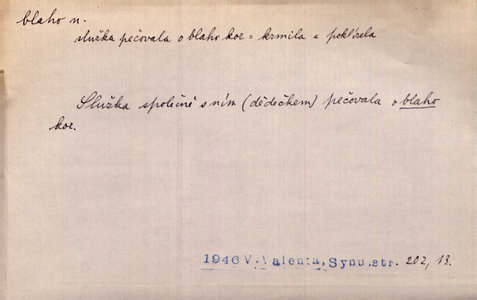 blaho n.
služka pečovala o blaho koz = krmila a poklízela
Služka společně s ním (dědečkem) pečovala o blaho
koz.
1946 V. Valenta, Synu. str. 202, 13.